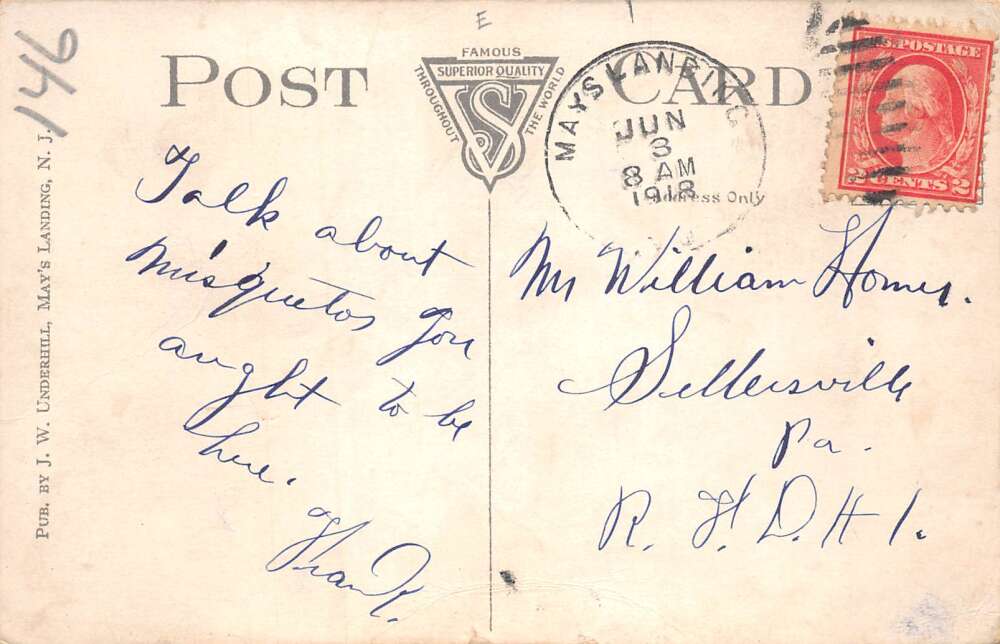 146
E
POST CARD
FAMOUS
SUPERIOR QUALITY
THROUGHOUT THE WORLD
VS
MAYS LANDING
JUN
3
8 AM
1918
Address Only
U.S. POSTAGE
2 CENTS 2
PUB. BY J. W. UNDERHILL, MAY'S LANDING, N. J.
Talk about
misquetos you
aught to be
here.
Frank.
Mr William Homer.
Sellersville
Pa.
R. F. D. # 1.